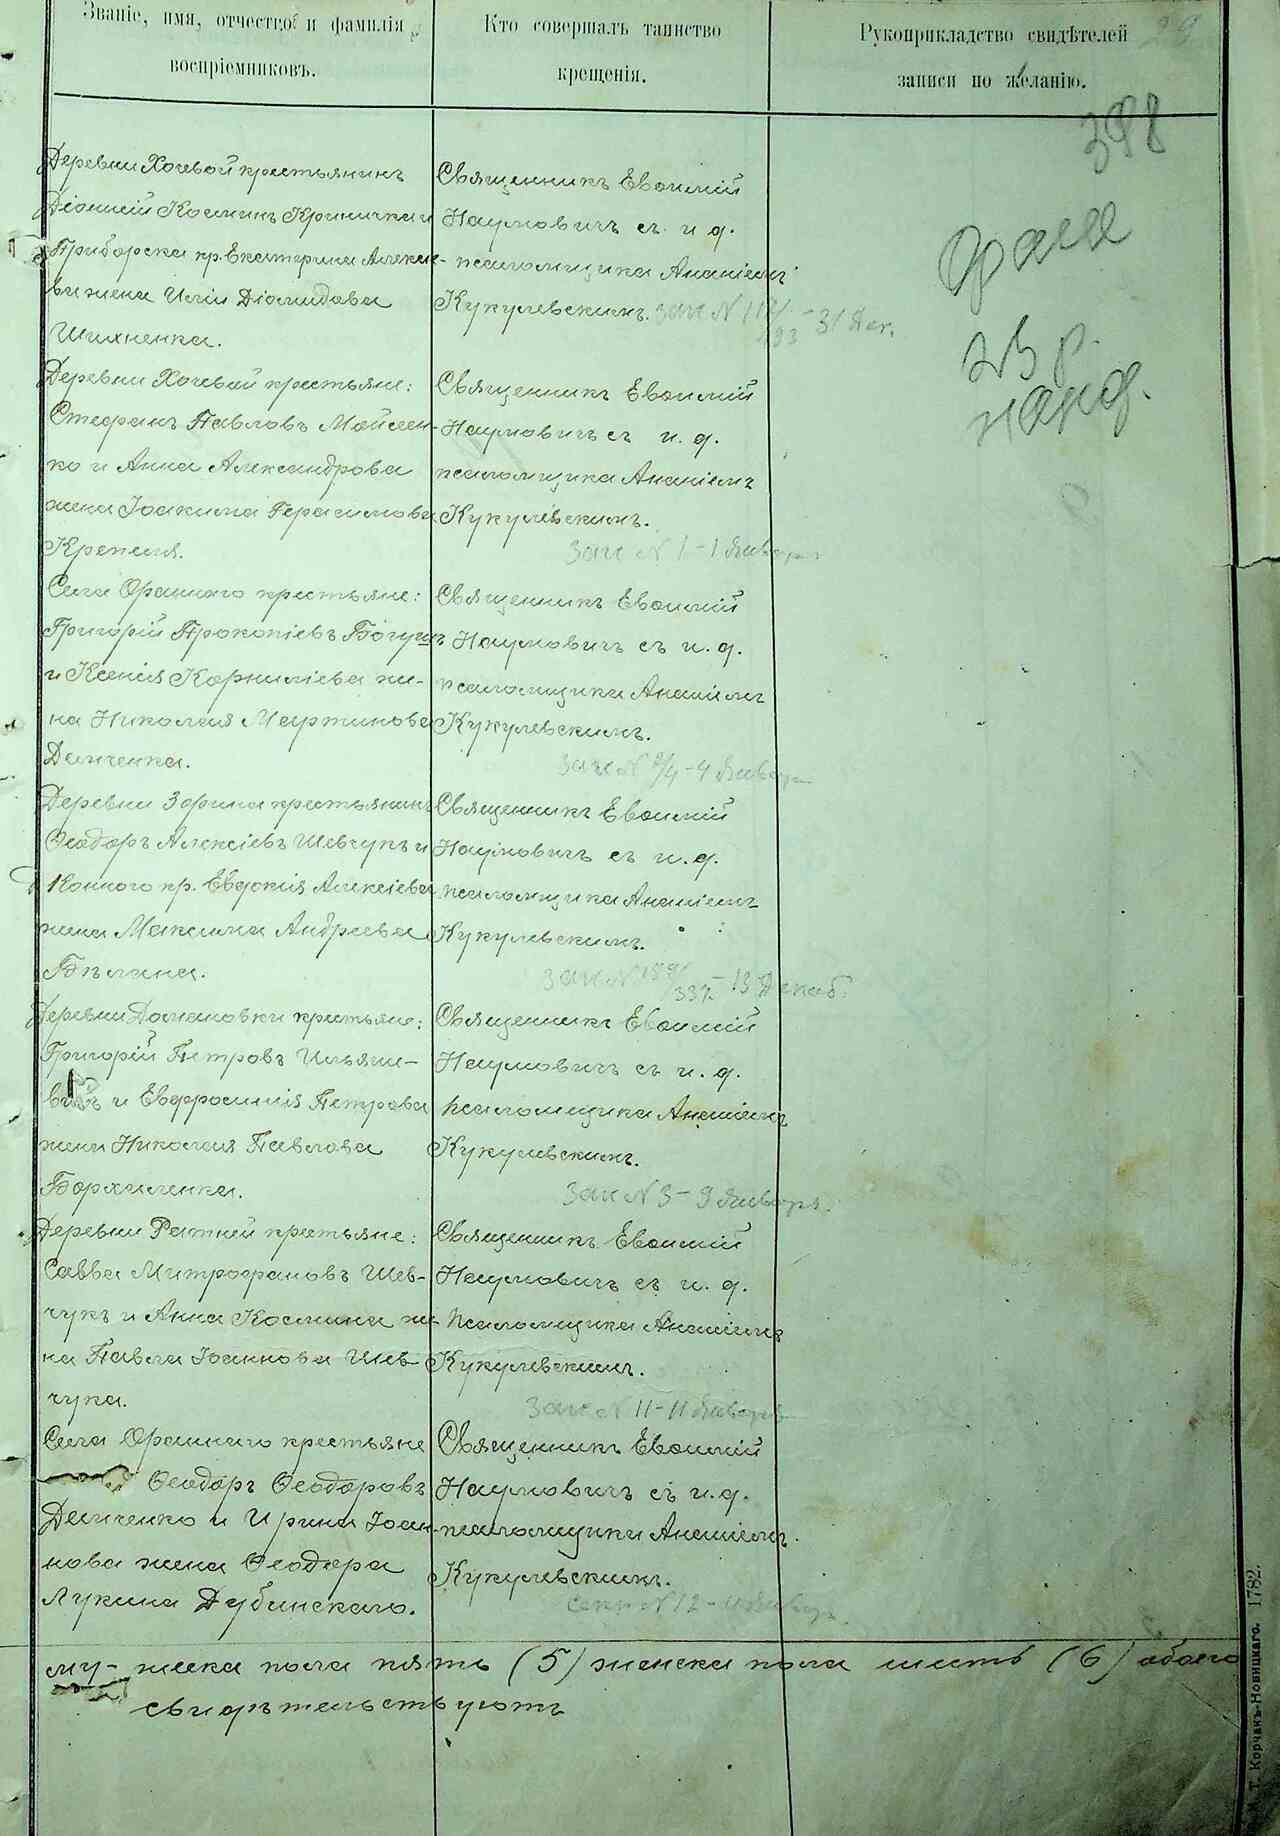 Званіе, имя, отчество и фамилія
воспріемниковъ.
Кто совершалъ таинство
крещенія.
Рукоприкладство свидѣтелей
записи по желанію.
29
398
Деревни Хочевой крестьянинъ
Діонисій Косминъ Криничка и
Приборска кр. Екатерина Алексіе-
ва жена Иліи Діомидова
Шихненка.
Священникъ Евѳимій
Наумовичъ съ и. д.
псаломщика Ананіемъ
Кукулевскимъ.
31 Дек.
Деревни Хочевой крестьяне:
Стефанъ Павловъ Мойсеен-
ко и Анна Александрова
жена Іоакима Герасимова
Священникъ Евѳимій
Наумовичъ съ и. д.
псаломщика Ананіемъ
Кукулевскимъ.
Зап N 1-1 Январ
Села Ораннаго крестьяне:
Григорій Прокопіевъ Богушъ
и Ксенія Корниліева же-
на Николая Мартинова
Демченка.
Священникъ Евѳимій
Наумовичъ съ и. д.
псаломщика Ананіемъ
Кукулевскимъ.
Зап N 2/4-4 Январ
Деревни Зорина крестьянинъ
Ѳеодоръ Алексіевъ Шевчукъ и
кр. Евдокія Алексіева
жена Максима Андреева
Бѣлана.
Священникъ Евѳимій
Наумовичъ съ и. д.
псаломщика Ананіемъ
Кукулевскимъ.
13 Декаб.
Деревни Домановки крестьяне:
Григорій Петровъ Ильяше-
вичъ и Евфросинія Петрова
жена Николая Павлова
Борхаленка.
Священникъ Евѳимій
Наумовичъ съ и. д.
псаломщика Ананіемъ
Кукулевскимъ.
Зап N 9-9 Января.
Деревни Ратней крестьяне:
Савва Митрофановъ Шев-
чукъ и Анна Космина же-
на Павла Іоаннова Шев
чука.
Священникъ Евѳимій
Наумовичъ съ и. д.
псаломщика Ананіемъ
Кукулевскимъ.
Зап N 11-11 Январь
Села Ораннаго крестьяне
Ѳеодоръ Ѳеодоровъ
Демченко и Ирина Іоан-
нова жена Ѳеодора
Лукина Дубинскаго.
Священникъ Евѳимій
Наумовичъ съ и. д.
псаломщика Ананіемъ
Кукулевскимъ.
N 12
му- жеска пола пять (5) женска пола шесть (6) обоего
свидѣтельствуютъ
Т. Корчакъ-Новицкаго. 1782.